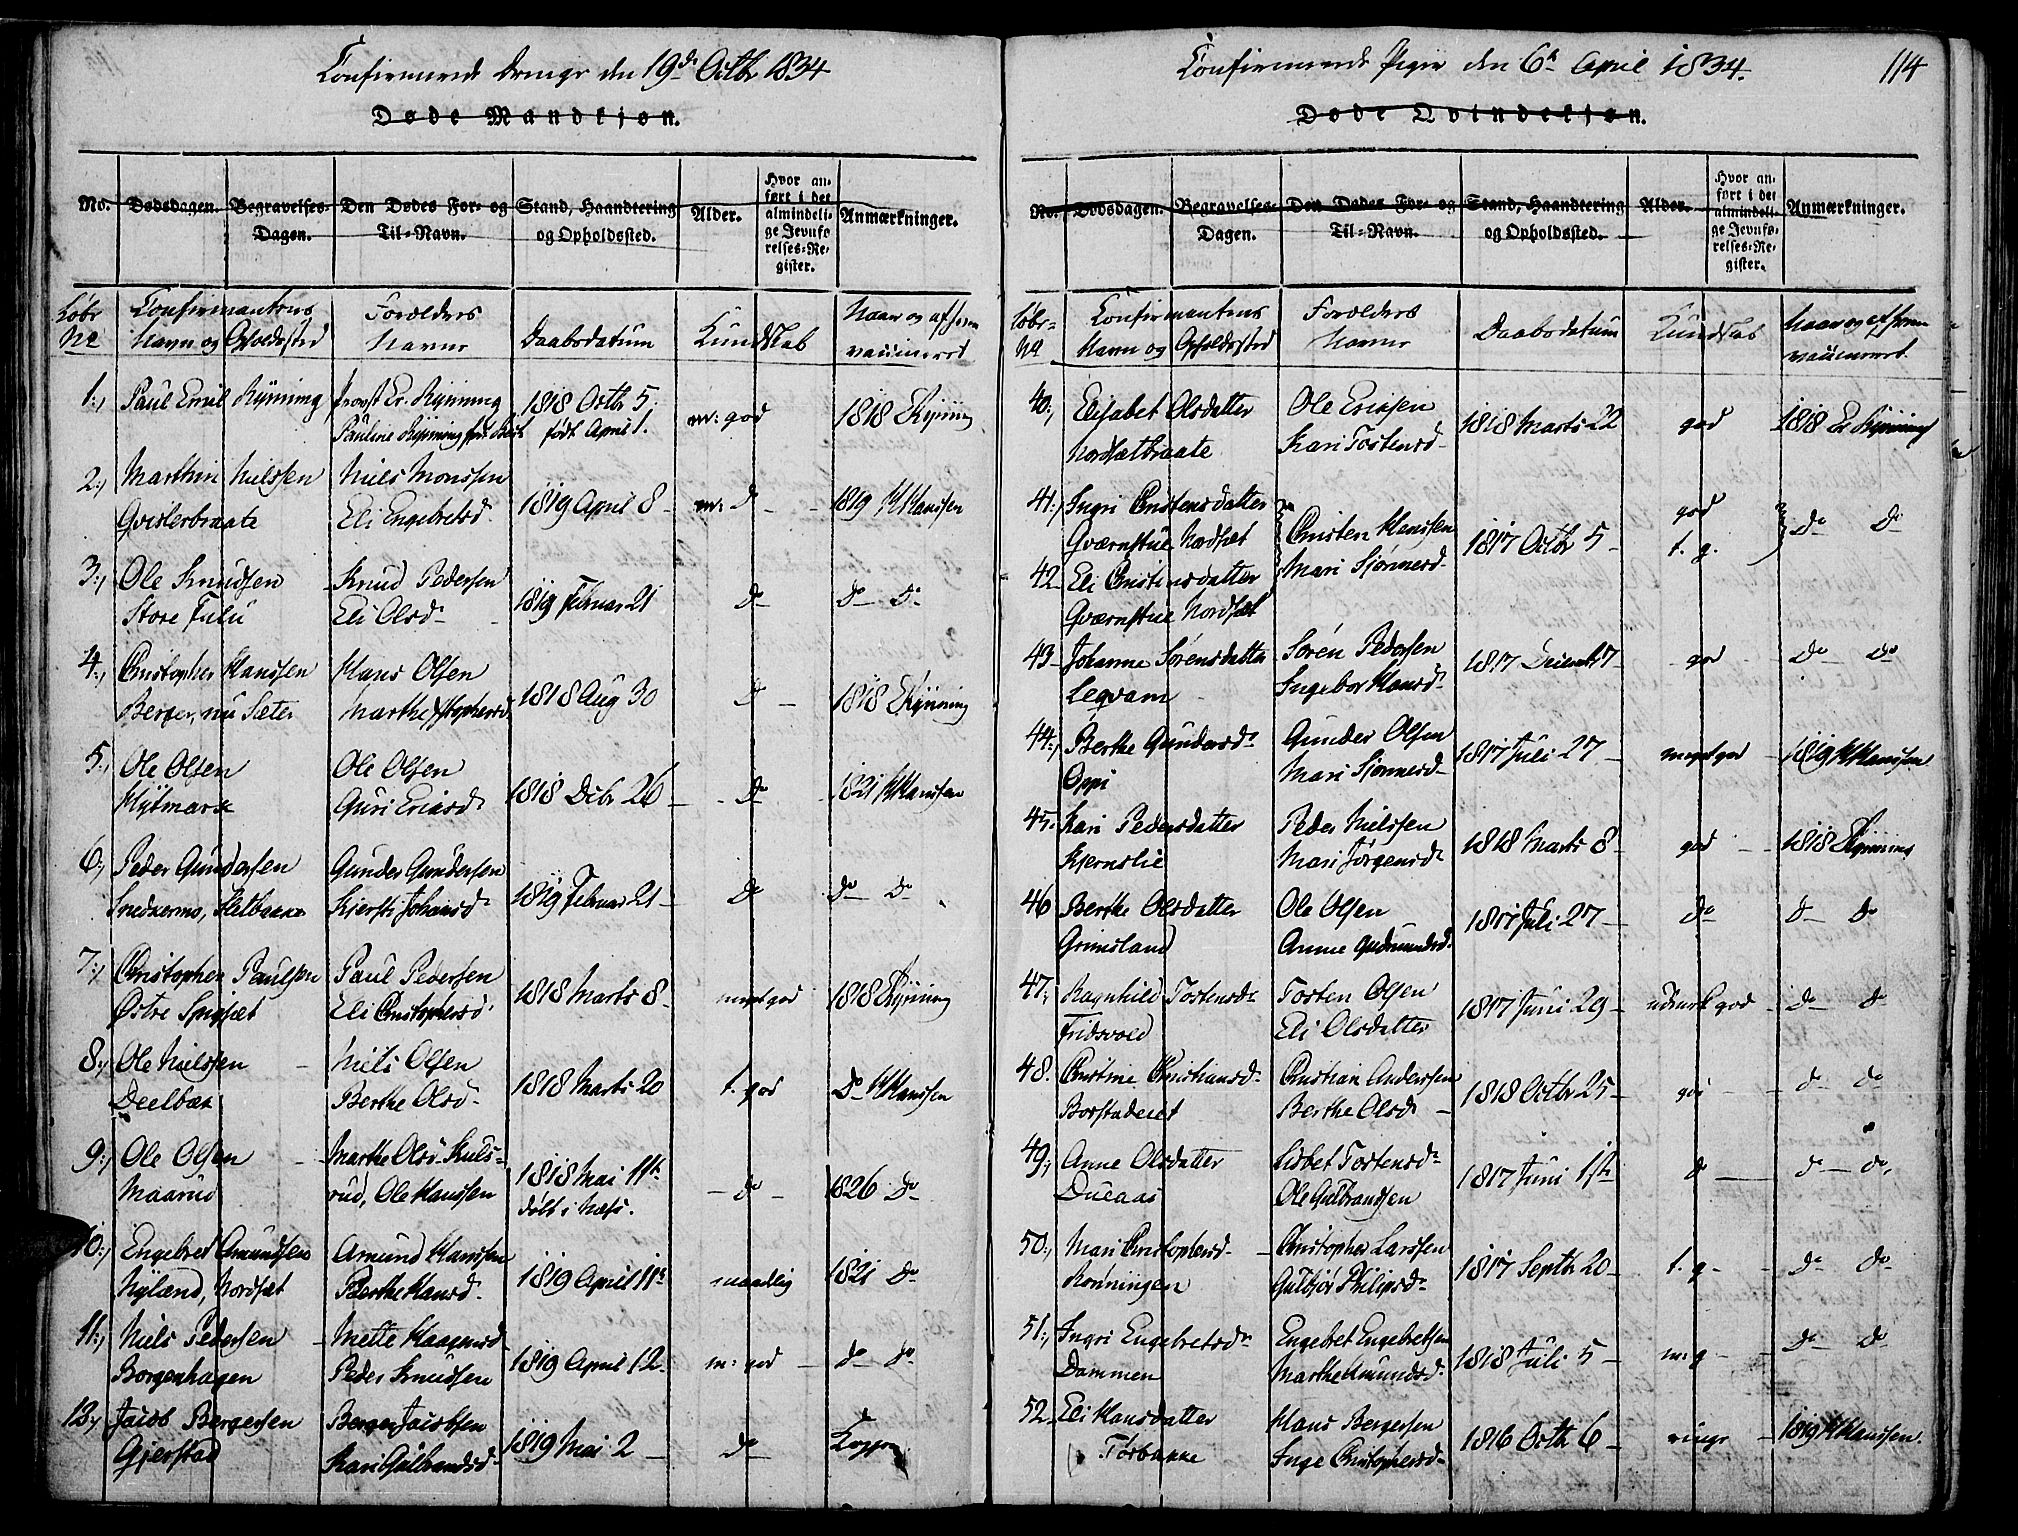 Confirmerede Drenge den 19de Octbr 1834
Døde Mandkjøn.
No. Dødsdagen. Begravelses-Dagen. Den Dødes For- og Til-Navn. Stand, Haandtering og Opholdssted. Alder. Hvor anført i det almindelige Jevnførelses-Register. Anmærkninger.
Løbe No Confirmantens Navn og Opholdssted Forældres Navne Daabsdatum Kundskab Naar og af hvem vaccineret
1:, Paul Emil Rynning Provst Er. Rynning 1818 Octbr 5 m: god 1818 Rynning
Pauline Rynning født April 1.
2:, Marthin Nielssen Niels Monssen 1819 April 8 - m: Do - 1819 H Hanssen
Qvisterbraate Eli Engebretsd.
3:, Ole Knudsen Knud Pedersen 1819 Februar 21 Do Do Do
Store Fulu Eli Olsd
4:, Christopher Hanssen Hans Olsen 1818 Aug 30 Do - 1818 Rynning
Berger, nu Sæter Marthe Xstophersd
5:, Ole Olsen Ole Olsen 1818 Debr 26 - Do 1821 H Hanssen
Hytmark Guri Ericsd
6:, Peder Gundersen Gunder Gundersen 1819 Februar 21 - Do Do Do
Snedkermo, Sletbakke Kjersti Johansd
7:, Christopher Paulsen Paul Pedersen 1818 Marts 8 - meget god 1818 Rynning
Østre Eli Christophersd
8:, Ole Nielssen Niels Olsen 1818 Marts 20 t. god Do H Hanssen
Deelbæk Berthe Olsd
9:, Ole Olsen Marthe Olsd Kuls= 1818 Mai 11te - Do 1826 Do
Maarud rud, Ole Hanssen døbt i Næs.
10:, Engebret Amundsen Amund Hanssen 1819 April 11te maadelig 1821 Do
Nyland, Nordsæt Berthe Hansd.
11:, Niels Pedersen Mette Haagensd 1819 April 12 - m: god - Do Do
Borgenhagen Peder Knudsen
12:, Jacob Bergersen Berger Jacobsen 1819 Mai 2 - Do
Gjerstad Kari Gulbrandsd
Confirmerede Piger den 6te April 1834. 114
Døde Qvindekjøn.
No. Dødsdagen. Begravelses-Dagen. Den Dødes For- og Til-Navn. Stand, Haandtering og Opholdssted. Alder. Hvor anført i det almindelige Jevnførelses-Register. Anmærkninger.
Løbe-No Confirmantens Navn og Opholdssted Forældres Navne Daabsdatum Kundskab Naar og af hvem vaccineret.
40:, Elisabet Olsdatter Ole Ericsen 1818 Marts 22 god 1818 Er Rynning
Nordsætbraate Kari Tostensd
41:, Ingri Christensdatter Christen Hanssen 1817 Octbr 5 - god Do Do
Qværnstue Nordsæt Mari Sjønnesd t. g.
42 Eli Christensdatter
Qværnstue Nordsæt
43 Johanne Sørensdatter Søren Pedersen 1817 Decembr 7 - god Do Do
Leqvam Ingebor Hansd
44:, Berthe Gundersd Gunder Olsen 1817 Juli 27 - meget god - 1819 H Hanssen
Oppi Mari Sjønnesd
45. Kari Pedersdatter Peder Nielssen 1818 Marts 8 - god - 1818 Rynning
Kjernslie Mari Jørgensd
46 Berthe Olsdatter Ole Olsen 1817 Juli 27 - Do Do Do
Grimsland Anne Gudmundsd
47:, Ragnhild Tostensd Tosten Olsen 1817 Juni 29 - udmærk god - Do Do
Fridsvold Eli Olsdatter
48. Christine Christiansd Christian Anderssen 1818 Octbr 25 - god - Do Do
Borstaderet Berthe Olsd
49:, Anne Olsdatter Lisbet Tostensd 1817 Juni 1ste Do - Do - Do
Ducaas Ole Gulbrandsen
50:, Mari Christophersd - Christopher Larssen 1817 Septbr 20 - t. g - Do Do
Rønningen Gulbjør Philipsd
51:, Ingri Engebretsd Engebret Engebretsen 1818 Juli 5 - m: g - Do Do
Dammen Marthe Amundsd
52 Eli Hansdatter Hans Bergersen 1816 Octbr 6 - ringe - 1819 H Hanssen.
Tørbakke Inge Christophersd